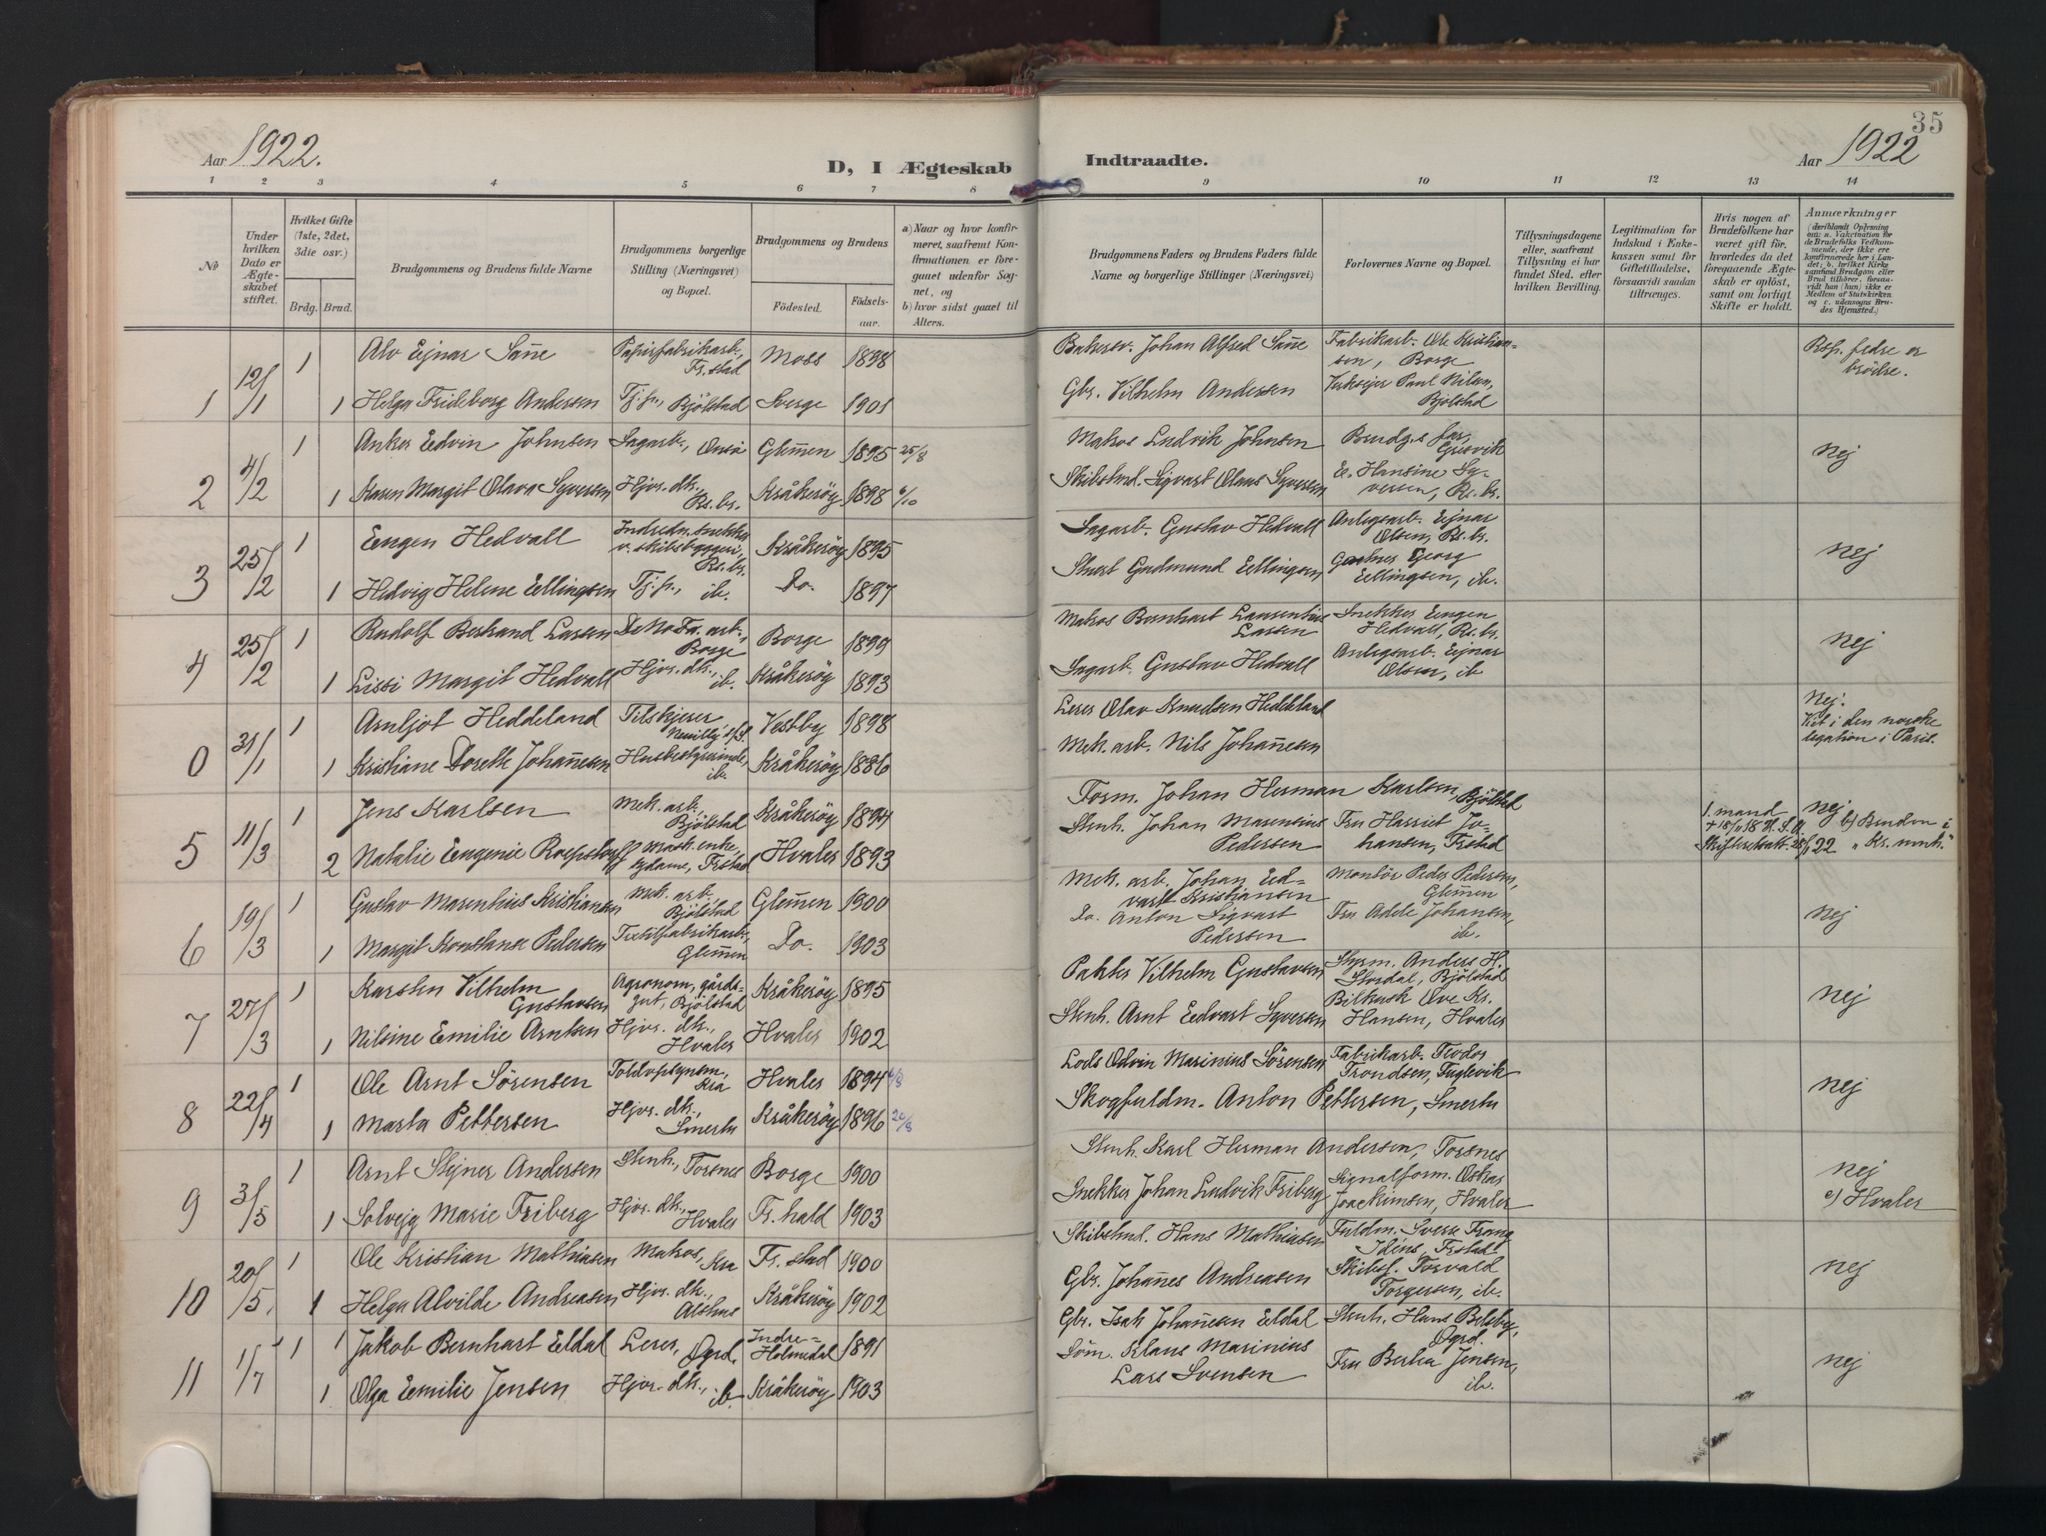 35
Aar 1922.
D, I Ægteskab Indtraadte.
Aar 1922
1 2 3 4 5 6 7 8 9 10 11 12 13 14
No
Under hvilken Dato er Ægteskabet stiftet.
Hvilket Gifte (1ste, 2det, 3die osv.)
Brdg. Brud.
Brudgommens og Brudens fulde Navne
Brudgommens borgerlige Stilling (Næringsvei) og Bopæl.
Brudgommens og Brudens
Födested. Födselsaar.
a) Naar og hvor konfirmeret, saafremt Konfirmationen er foregaaet udenfor Sognet, og
b) hvor sidst gaaet til Alters.
Brudgommens Faders og Brudens Faders fulde Navne og borgerlige Stillinger (Næringsvei)
Forlovernes Navne og Bopæl.
Tillysningsdagene eller, saafremt Tillysning ei har fundet Sted, efter hvilken Bevilling.
Legitimation for Indskud i Enkekassen samt for Giftetilladelse, forsaavidt saadan tiltrænges.
Hvis nogen af Brudefolkene har været gift för, hvorledes da det foregaaende Ægteskab er oplöst, samt om lovligt Skifte er holdt.
Anmærkninger (deriblandt Oplysning om: a. Vaccination for de Brudefolks Vedkommende, der ikke ere konfirmerede her i Landet; b. hvilket Kirkesamfund Brudgom eller Brud tilhører, forsaavidt han (hun) ikke er Medlem af Statskirken og c. udensogns Brudes Hjemsted.)
1 12/1 1 Alv Ejnar Sāne Papirfabrikarb., Fr.stad Moss 1898 Johan Alfred Sāne Fabrikarb. Ole Kristiansen, Borge Resp. fedre er brödre.
1 Helga Frideborg Andersen Tj.p., Bjölstad Sverge 1901 Gbr. Vilhelm Andersen Paul Nilsen, Bjölstad
2 4/2 1 Anker Edvin Johnsen Sagarb., Onsö Glem̄en 1895 25/8 Matros Ludvik Johnsen Brudg.s far, Gresvik nej
1 Karen Margit Olava Syversen Hjvr. dtr., Rs.br. Kråkeröy 1898 6/10 Skibstmd. Sigvart Olaus Syversen E. Hansine Syversen, Rs.br.
3 25/2 1 Eugen Hedvall Indredn.snekker v. skibsbyggeri, Rs.br. Kråkeröy 1895 Sagarb. Gustav Hedvall Anlegsarb. Ejnar Olsen, Rs.br. nej
1 Hedvig Helene Ellingsen Tj.p., ib. Do. 1897 Gudmund Ellingsen Georg Ellingsen, ib.
4 25/2 1 Rudolf Bertrand Larsen DeNoFa arb., Borge Borge 1899 Matros Bernhart Laurentius Larsen Snekker Eugen Hedvall, Rs.br. nej
1 Lissi Margit Hedvall Hjvr. dtr., ib. Kråkeröy 1893 Sagarb. Gustav Hedvall Anlegsarb. Ejnar Olsen, ib
0 31/1 1 Arnljot Heddeland Tilskjerer Neuilly s/S. Vestby 1898 Lerer Olav Knudsen Heddeland Nej. Viet i den norske legation i Paris.
1 Kristiane Dorette Johan̄esen Husbestyrerinde, ib. Kråkeröy 1886 Mek. arb. Nils Johan̄esen
5 11/3 1 Jens Karlsen Mek. arb., Bjölstad Kråkeröy 1894 Form. Johan Herman Karlsen, Bjölstad 1. mand + 18/11 18 22 nej b) Bruden i "Kr. menh."
2 Natalie Eugenie Roepstorff Mask. enke, sydame, Fr.stad Hvaler 1893 Stenh. Johan Marensius Pedersen Fru Harriet Johansen, Fr.stad
6 19/3 1 Gustav Marenhius Kristiansen Mek. arb. Bjölstad Glem̄en 1900 Mek. arb. Johan Edvart Kristiansen Montör Peder Pedersen, Glem̄en nej
1 Margit Konstanse Pedersen Textilfabrikarb., Glem̄en Do. 1903 Do. Anton Sigvart Pedersen Fru Adele Johansen, ib.
7 27/3 1 Karsten Vilhelm Gustavsen Agronom, gårdsgut, Bjölstad Kråkeröy 1895 Pakter Vilhelm Gustavsen Styrm. Anders H. Stordal, Bjölstad nej
1 Nilsine Emilie Arntsen Hjvr. dtr., Hvaler Hvaler 1902 Stenh. Arnt Edvart Syversen Ove Kr. Hansen, Hvaler
8 22/4 1 Ole Arnt Sörensen Toldopsynsm., Kra Hvaler 1894 Lods Odvin Marinius Sörensen Fabrikarb. Teodor Trondsen, Fuglevik nej
1 Marta Pettersen Hjvr. dtr., Smertu Kråkeröy 1896 20/8 Skogfuldm. Anton Pettersen, Smertu
9 3/5 1 Arnt Stejner Andersen Stenh., Torsnes Borge 1900 Stenh. Karl Herman Andersen, Torsnes nej
1 Solvejg Marie Friberg Hjvr. dtr., Hvaler Fr.hald 1903 Snekker Johan Ludvik Friberg Signalform. Oskar Joackimsen, Hvaler c) Hvaler
10 20/5 1 Ole Kristian Mathiasen Matros, Kra Fr.stad 1900 Skibstmd. Hans Mathiasen Fuldm. Sverre Frang Idéns, Fr.stad nej
1 Helga Alvilde Andreasen Hjvr. dtr., Alshus Kråkeröy 1902 Gbr. Johan̄es Andreasen Skibsf. Torvald Torgersen, ib.
11 1/7 1 Jakob Bernhart Eldal Lerer, Ögrd. Indre-Holmedal 1891 Gbr. Isak Johan̄esen Eldal Stenh. Hans Bilsby, Ögrd. nej
1 Olga Emilie Jensen Hjvr. dtr., ib. Kråkeröy 1903 Söm. Klaus Marinius Lars Svensen Fru Berta Jensen, ib.